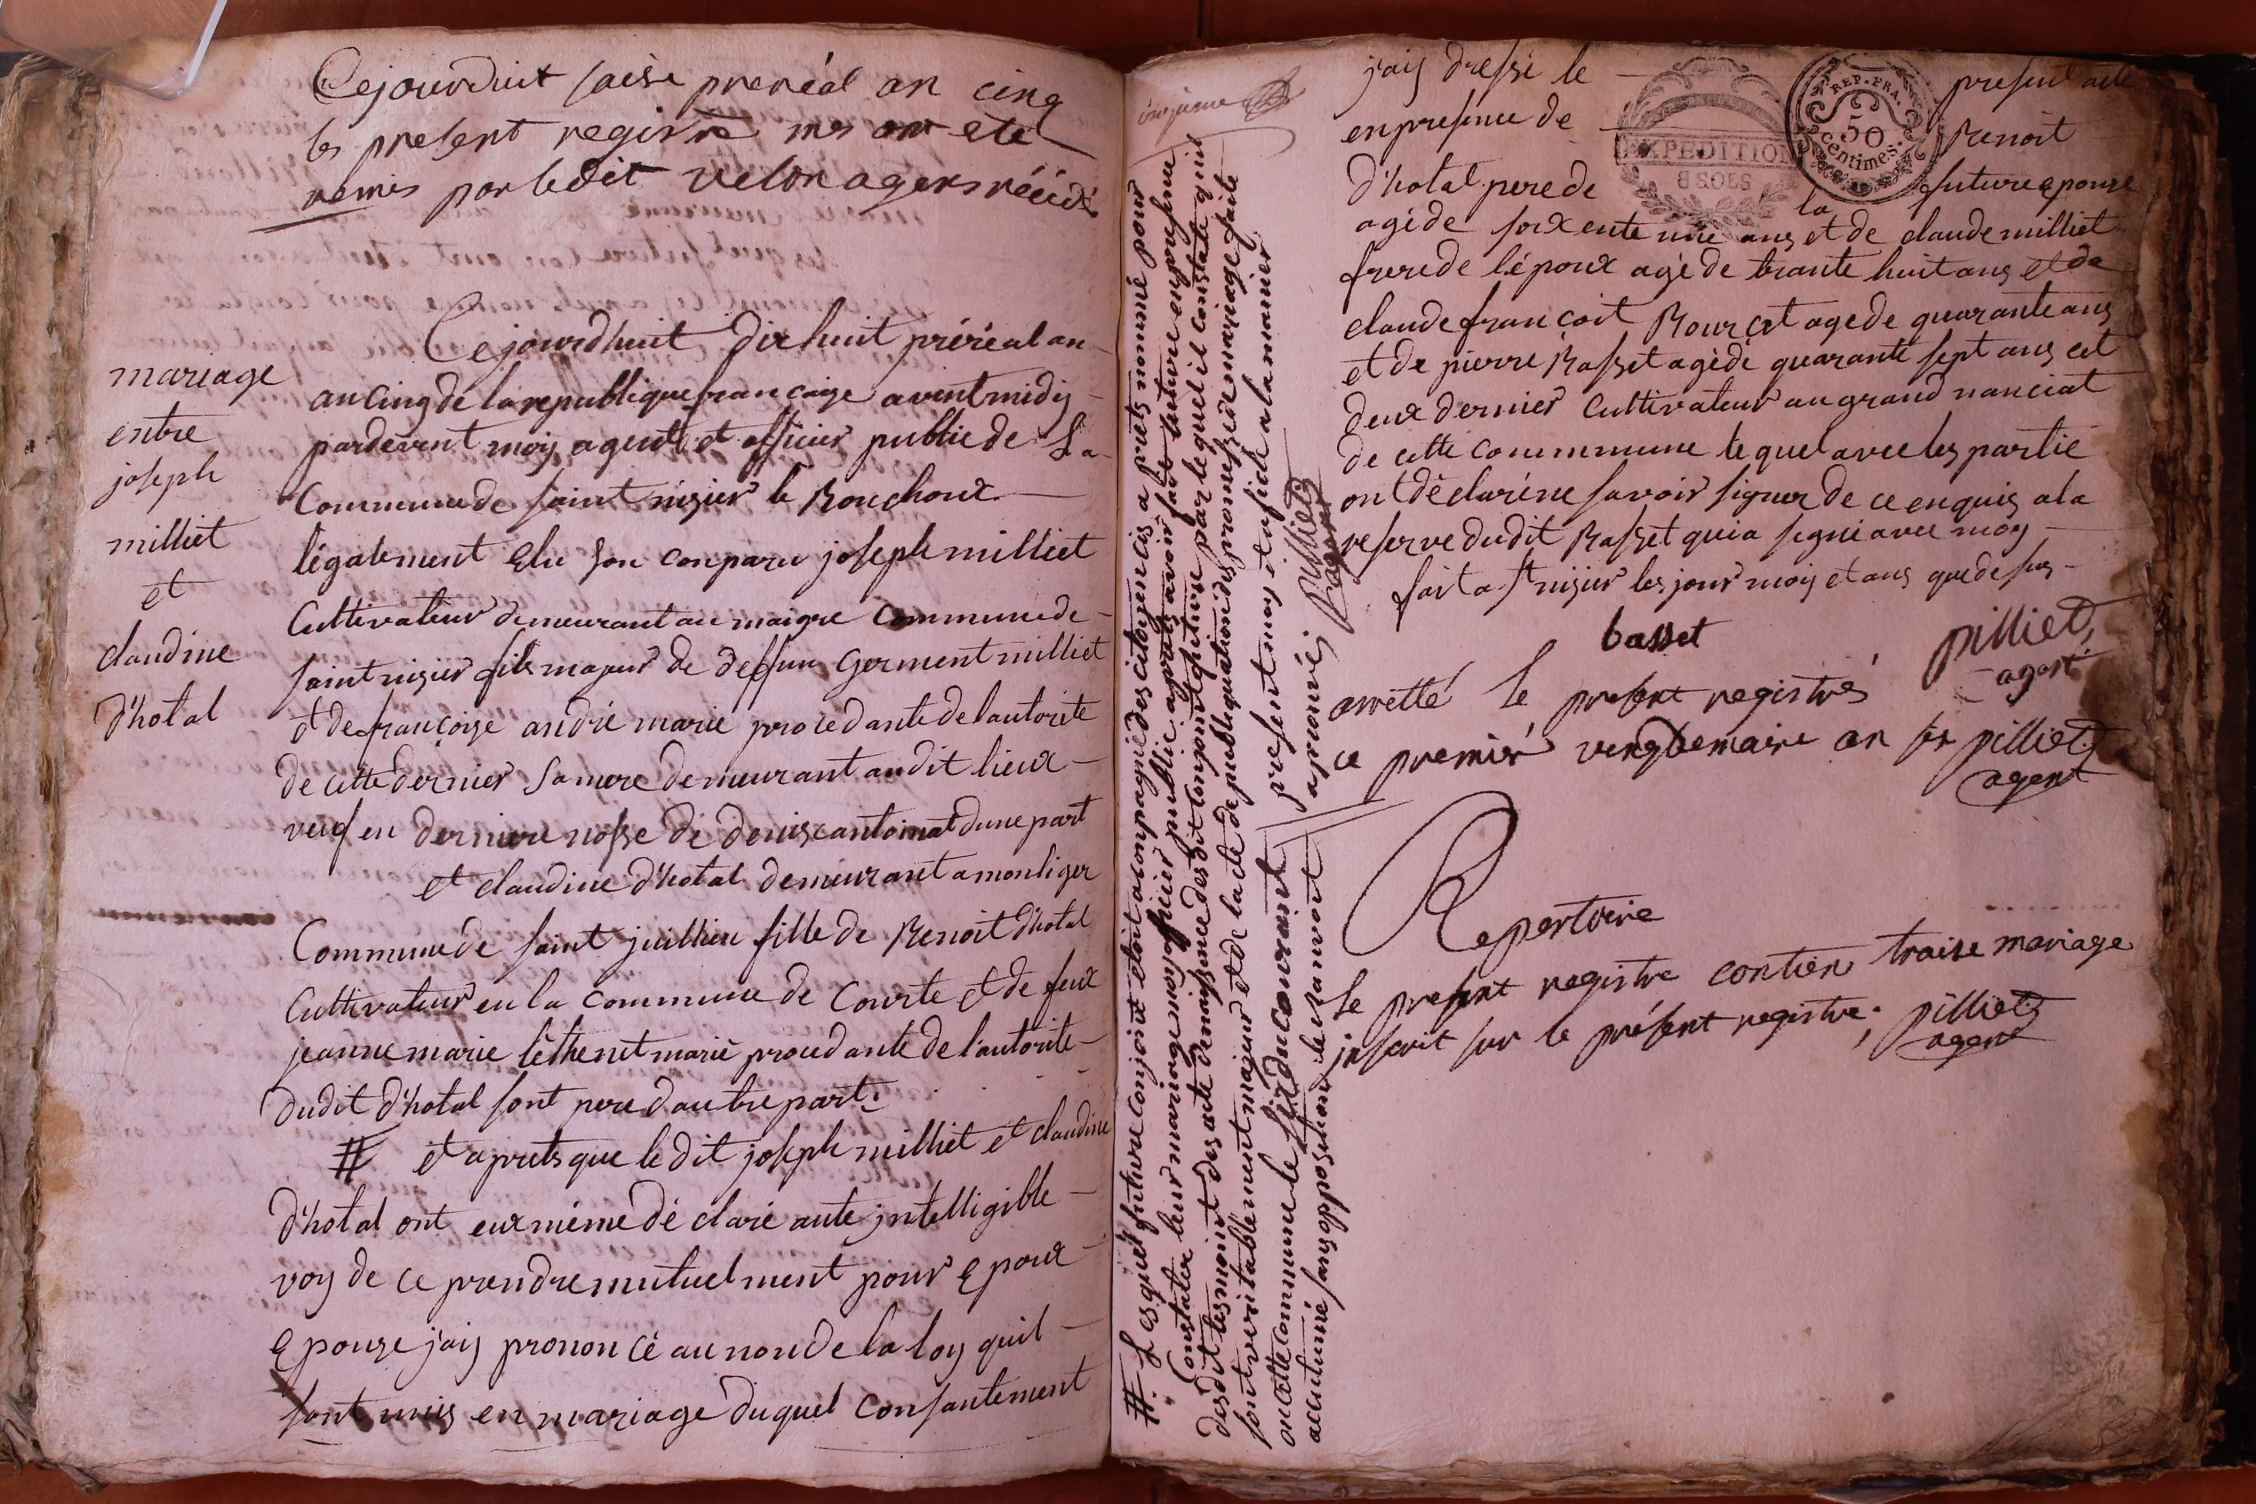 Cejourduit saise preréal an cinq
les present registre mes on ete
remis par ledit velon agens
mariage
entre
joseph
milliet
et
claudine
d'hotal
Cejourdhuit dix huit préréal an
an cinq de la republique francaise avent midy
pardevent moy agent et officier public de La
Commune de saint nizier le Bouchoux
légalement elu son conparu joseph milliet
Cultivateur demeurant au maigre Commune de
saint nizier fils majeur de deffun Germent milliet
et de françoise andré marie procedante de lautorite
de cette dernier sa mere demeurant audit lieux
veuf en derniere nosse de denise antoinat dune part
et claudine d'hotal demeurant a monliger
Commune de saint juillien fille de Benoit d'hotal
Cultivateur en la Commune de Courte et de feux
jeanne marie lethenet marié procedante de l'autorite
dudit d'hotal sont pere dautre part.
# et aprets que le dit joseph milliet et claudine
d'hotal ont eux méme dé claré aute jntelligible
voy de ce prendre mutuelment pour epoux
epouze jay prononcé au non de la loy quil
sont unis en mariage duquel consantement
onzieme
# Lesquel future conjoint etoit aconpagnié des citoyen cis a prets nommé pour
Constater leur mariage moy officier public aprais avoir fait lecture en presence
desdit tesmoint des acte de naissance desdit conjoint future par lequel il constate quil
sont veritablement majeur et de lacte de publiquation des promesse de mariage faite
en cette commune le six du courant present moy et afiché a la manier
acutumé sans opposition le renvoit aprouvé; pilliet agent
jay dressé le present acte
en presence de Benoit
d'hotal pere de la future epouze
agé de soixente une ans et de claude milliet
frere de l'époux agé de trante huit ans et de
claude francoit Bourcet age de quarante ans
et de pierre Basset agé de quarante sept ans cet
deux dernier Cultivateur au grand nanciat
de cette commmune lequel avec les partie
ont déclaré ne savoir signer de ce enquis a la
reserve dudit Basset qui a signé avec moy
fait a st nizier les jour moy et ans que de sus
EXPEDITION
REP. FRA.
50
centimes.
basset
pilliet
agent
arretté le present registrés
ce premier vengdemaire an six pilliet
agent
Repertoire
le present registre contien traise mariage
jnscrit sur le présent registre. pilliet
agent